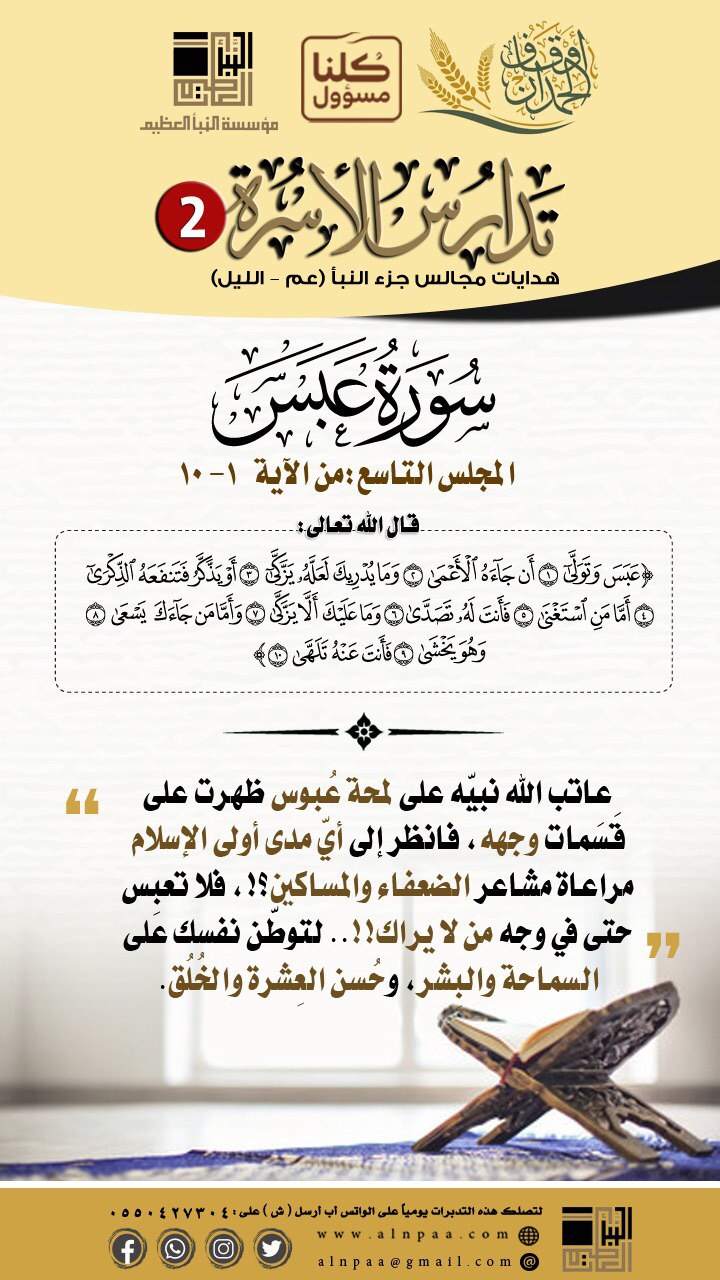 النبأ العظيم
مؤسسة النبأ العظيم
كلنا مسؤول
أوقاف الحمدان
تَدَارُس الأُسْرَة 2
هدايات مجالس جزء النبأ (عم - الليل)
سُورَةُ عَبَسَ
المجلس التاسع :من الآية ١- ١٠
قال الله تعالى:
﴿عَبَسَ وَتَوَلَّىٰٓ ١ أَن جَآءَهُ ٱلۡأَعۡمَىٰ ٢ وَمَا يُدۡرِيكَ لَعَلَّهُۥ يَزَّكَّىٰٓ ٣ أَوۡ يَذَّكَّرُ فَتَنفَعَهُ ٱلذِّكۡرَىٰٓ
٤ أَمَّا مَنِ ٱسۡتَغۡنَىٰ ٥ فَأَنتَ لَهُۥ تَصَدَّىٰ ٦ وَمَا عَلَيۡكَ أَلَّا يَزَّكَّىٰ ٧ وَأَمَّا مَن جَآءَكَ يَسۡعَىٰ ٨
وَهُوَ يَخۡشَىٰ ٩ فَأَنتَ عَنۡهُ تَلَهَّىٰ ١٠﴾
عاتب الله نبيّه على لمحة عُبوس ظهرت على
قَسَمات وجهه، فانظر إلى أيّ مدى أولى الإسلام
مراعاة مشاعر الضعفاء والمساكين؟!، فلا تعبِس
حتى في وجه من لا يراك!!.. لتوطّن نفسك على
السماحة والبشر، وحُسن العِشرة والخُلُق.
لتصلك هذه التدبرات يومياً على الواتس أب أرسل ( ش ) على : ٠٥٥٠٤٢٧٣٠٤
www.alnpaa.com
alnpaa@gmail.com
النبأ العظيم